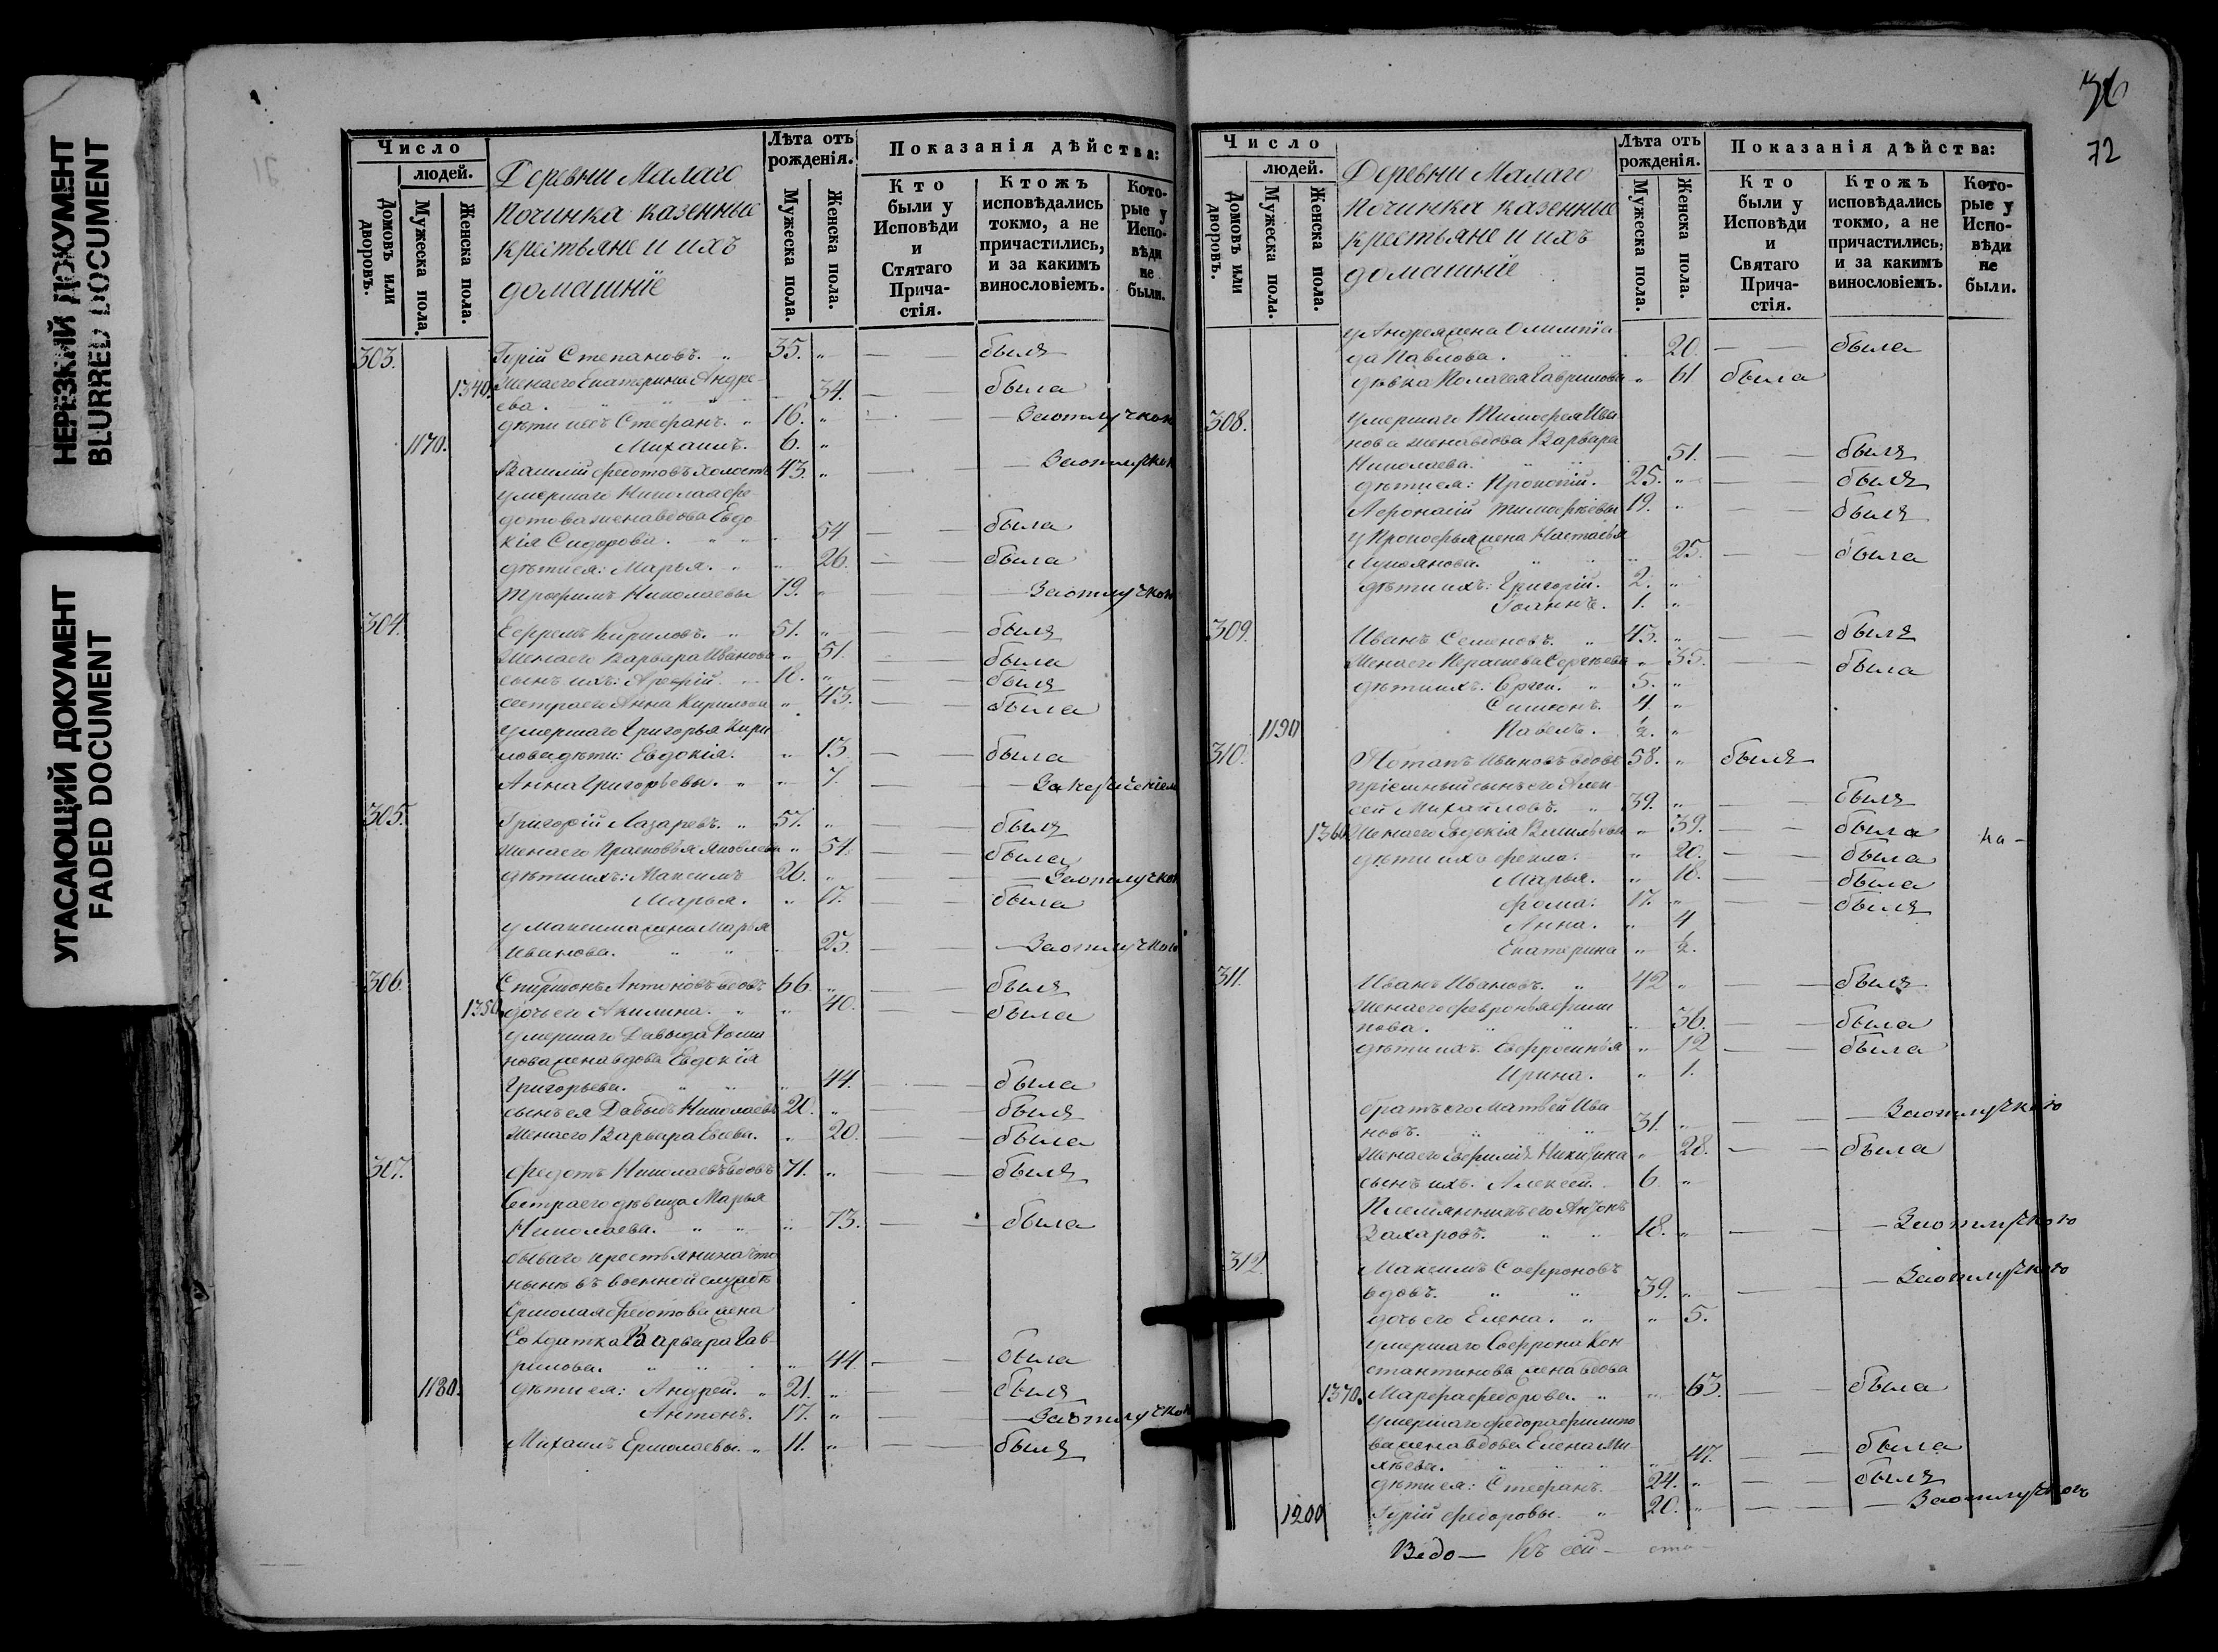 НЕРЕЗКИЙ ДОКУМЕНТ
BLURRED DOCUMENT
УГАСАЮЩИЙ ДОКУМЕНТ
FADED DOCUMENT
Число
людей.
Домовъ или дворовъ.
Мужеска пола.
Женска пола.
Деревни Малаго
починка казенные
крестьяне и ихъ
домашніе
Лѣта отъ рожденія.
Мужеска пола.
Женска пола.
Показанія дѣйства:
Кто были у Исповѣди и Стятаго Прича-стія.
Ктожъ исповѣдались токмо, а не причастились, и за какимъ винословіемъ.
Кото-рые у Испо-вѣди не были.
303. Гурій Степановъ. 35. " — былъ
1340. Жена его Екатерина Андре-
ева. " 34. — была
дѣти ихъ Стефанъ. 16. " — За отлучкою
1170. Михаилъ. 6. "
Василій Федотовъ холостъ 43. " — За отлучкою
умершаго Николая Фе-
дотова жена вдова Евдо-
кія Сидорова. " 54 — была
дѣти ея: Марья. " 26. — была
Трофимъ Николаевы 19. " — За отлучкою
304. Ефремъ Кириловъ. 51. " — былъ
Жена его Варвара Иванова " 51. — была
сынъ ихъ: Арефій. 18. " — былъ
сестра его Анна Кирилова " 43. — была
умершаго Григорья Кири
лова дѣти: Евдокія. " 13 — была
Анна Григорьевы. " 7. —
305. Григорій Лазаревъ. 57. " — былъ
Жена его Прасковья Яковлева " 54. — была
дѣти ихъ: Максимъ 26. " — За отлучкою
Марья. " 17. — была
у Максима жена Марья
Иванова. " 25. — За отлучкою
306. Спиридонъ Антоновъ вдовъ 66. " — былъ
1350. дочь его Акилина. " 40. — была
умершаго Давыда
жена вдова Евдокія
Григорьева. " 44. — была
сынъ ея Давыдъ Николаевъ 20. " — былъ
Жена его Варвара Евсева. " 20. — была
307. Федотъ Николаевъ вдовъ 71. " — былъ
Сестра его дѣвица Марья
Николаева. " 73. — была
бываго крестьянина что
нынѣ въ военной службѣ
Ермолая Федотова жена
Солдатка Варвара Гав-
рилова. " 44 — была
1180. дѣти ея: Андрей. 21. " — былъ
Антонъ. 17. " — За отлучкою
Михаилъ Ермолаевы. 11. " — былъ
36
72
Число
людей.
Домовъ или дворовъ.
Мужеска пола.
Женска пола.
Деревни Малаго
починка казенные
крестьяне и ихъ
домашніе
Лѣта отъ рожденія.
Мужеска пола.
Женска пола.
Показанія дѣйства:
Кто были у Исповѣди и Святаго Прича-стія.
Ктожъ исповѣдались токмо, а не причастились, и за какимъ винословіемъ.
Кото-рые у Испо-вѣди не были.
у Андрея жена Олимпіа
да Павлова. 20. — была
дѣвка Пелагея Гаврилова " 61 была
308. умершаго Тимофея Ива
нова жена вдова Варвара
Николаева. 51. — была
дѣти ея: Прокопій. 25. " — былъ
Афонасій Тимофѣевы 19. " — былъ
у Прокофья жена Настасья
Лукоянова. " 25. — была
дѣти ихъ: Григорій. 2. "
Іоаннъ. 1. "
309. Иванъ Семеновъ. 43. " — былъ
Жена его Сергѣева " 35. — была
дѣти ихъ: Сергей. 5. "
Симеонъ. 4. "
1190 Павелъ. ½. "
310. Потапъ Ивановъ вдовъ 58. " былъ
пріемный сынъ его Алек
сей Михайловъ. 39. " — былъ
1360. Жена его Евдокія Васильева " 39. — была
дѣти ихъ Фекла. " 20. — была
Марья. " 18. — была
Фома. 17. " — былъ
Анна. " 4
Екатерина " ½.
на-
311. Иванъ Ивановъ. 42 " — былъ
Жена его Февронья Фили
пова. " 36. — была
дѣти ихъ. Евфросинья " 12 — была
Ирина. " 1.
братъ его Матвей Ива
новъ. 31. " — За отлучкою
Жена его Евфимія Никитина " 28. — была
сынъ ихъ. Алексей. 6 "
Племянникъ его Антонъ
Захаровъ. 18. " — За отлучкою
312. Максимъ Софроновъ
вдовъ. 39. " — За отлучкою
дочь его Елена. " 5.
умершаго Софрона Кон
стантинова жена вдова
1370. Марфа Федорова. " 63. — была
умершаго Федора Филипо
ва жена вдова Елена Ми
хѣева. " 47. — была
дѣти ея: Стефанъ. 24. " — былъ
1200 Гурій Федоровы. 20. " — За отлучкою
Въ сей